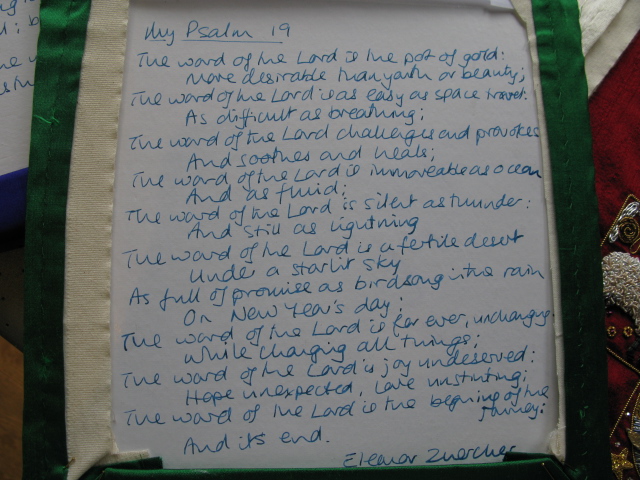 My Psalm 19
The word of the Lord is the pot of gold:
More desirable than youth or beauty;
The word of the Lord is as easy as space travel:
As difficult as breathing;
The word of the Lord challenges and provokes
And soothes and heals;
The word of the Lord is immoveable as ocean
And as fluid;
The word of the Lord is silent as thunder:
And still as lightning
The word of the Lord is a fertile desert
Under a starlit sky
As full of promise as birdsong in the rain
On New Year's day;
The word of the Lord is for ever, unchanging
While changing all things;
The word of the Lord is joy undeserved:
Hope unexpected, Love unstinting;
The word of the Lord is the beginning of the
journey:
And its end.
Eleanor Zuercher